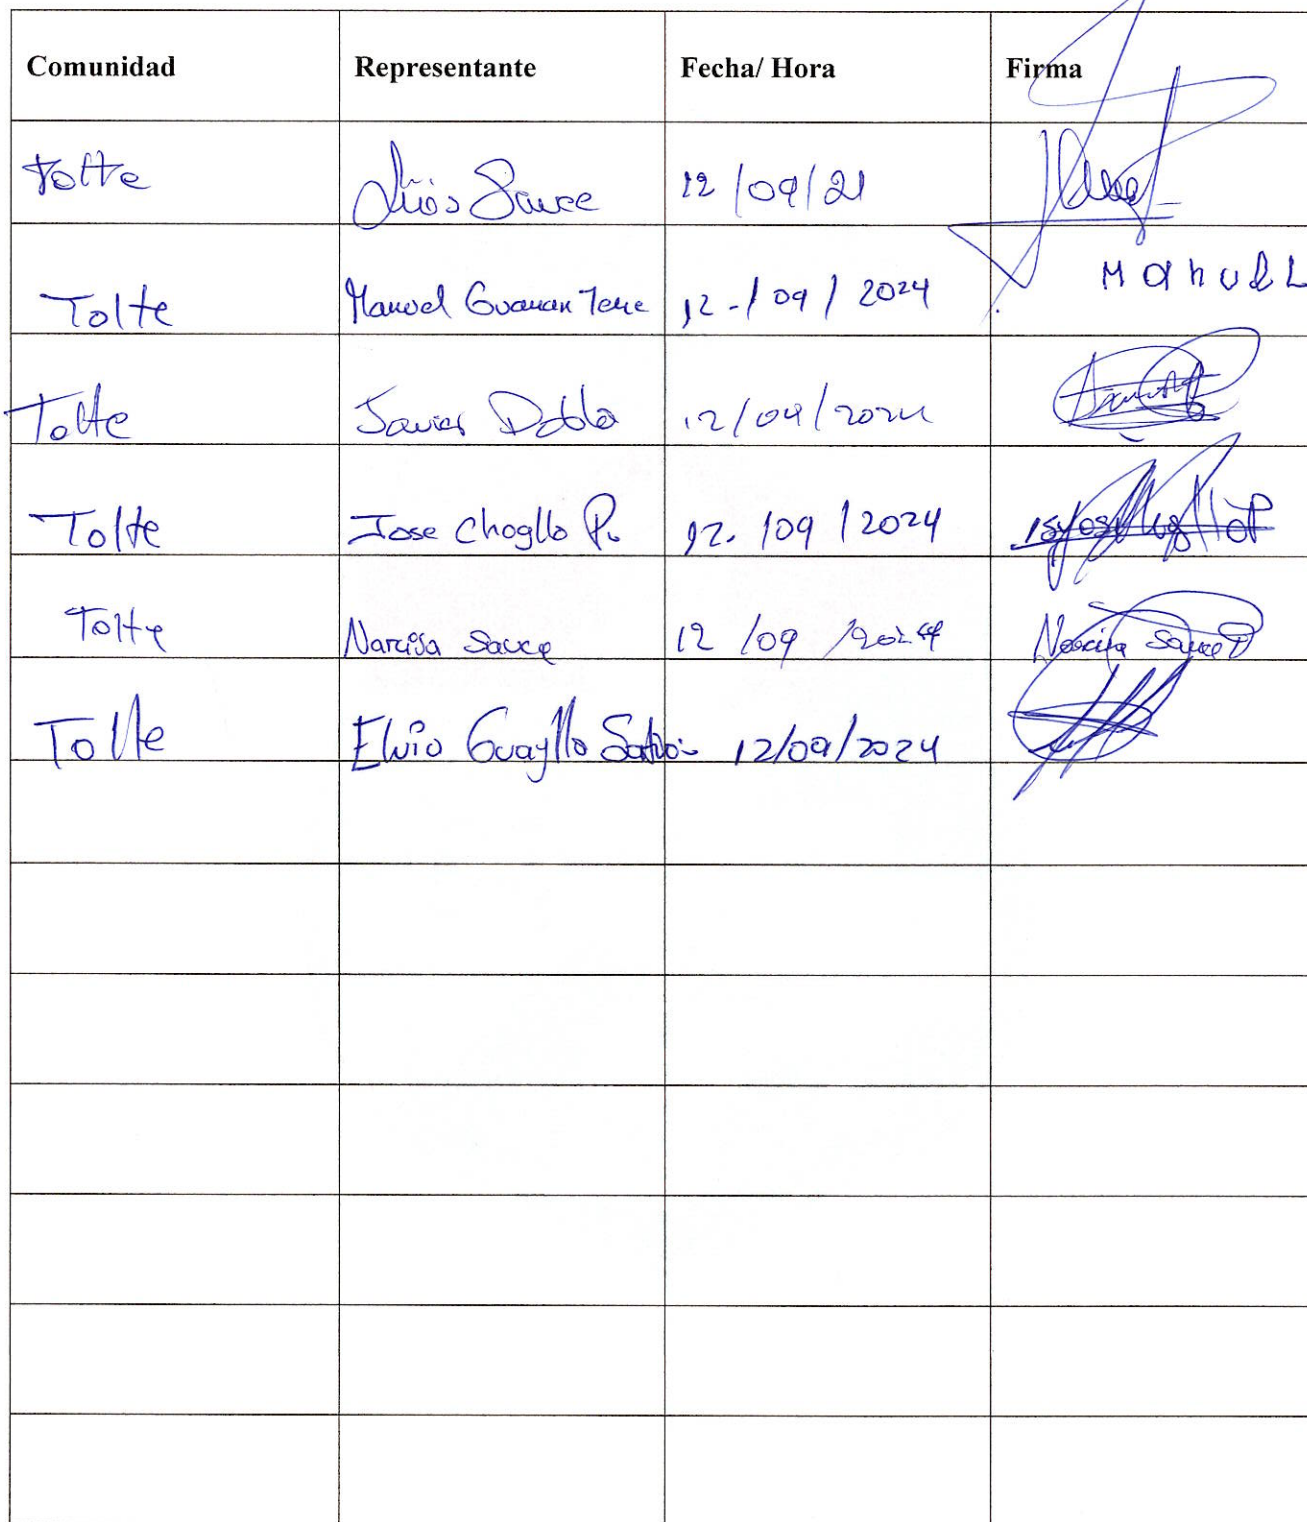 Comunidad Representante Fecha/ Hora Firma
Tolte Luis Sauce 12/09/21
Tolte Manuel Guaman 12-/09/2024 Manuel
Tolte Javier 12/09/2024
Tolte Jose Chogllo P. 12./09/2024
Tolte Narcisa Sauce 12/09/2024 Narcisa Sauce
Tolte Elvio Guayllo 12/09/2024